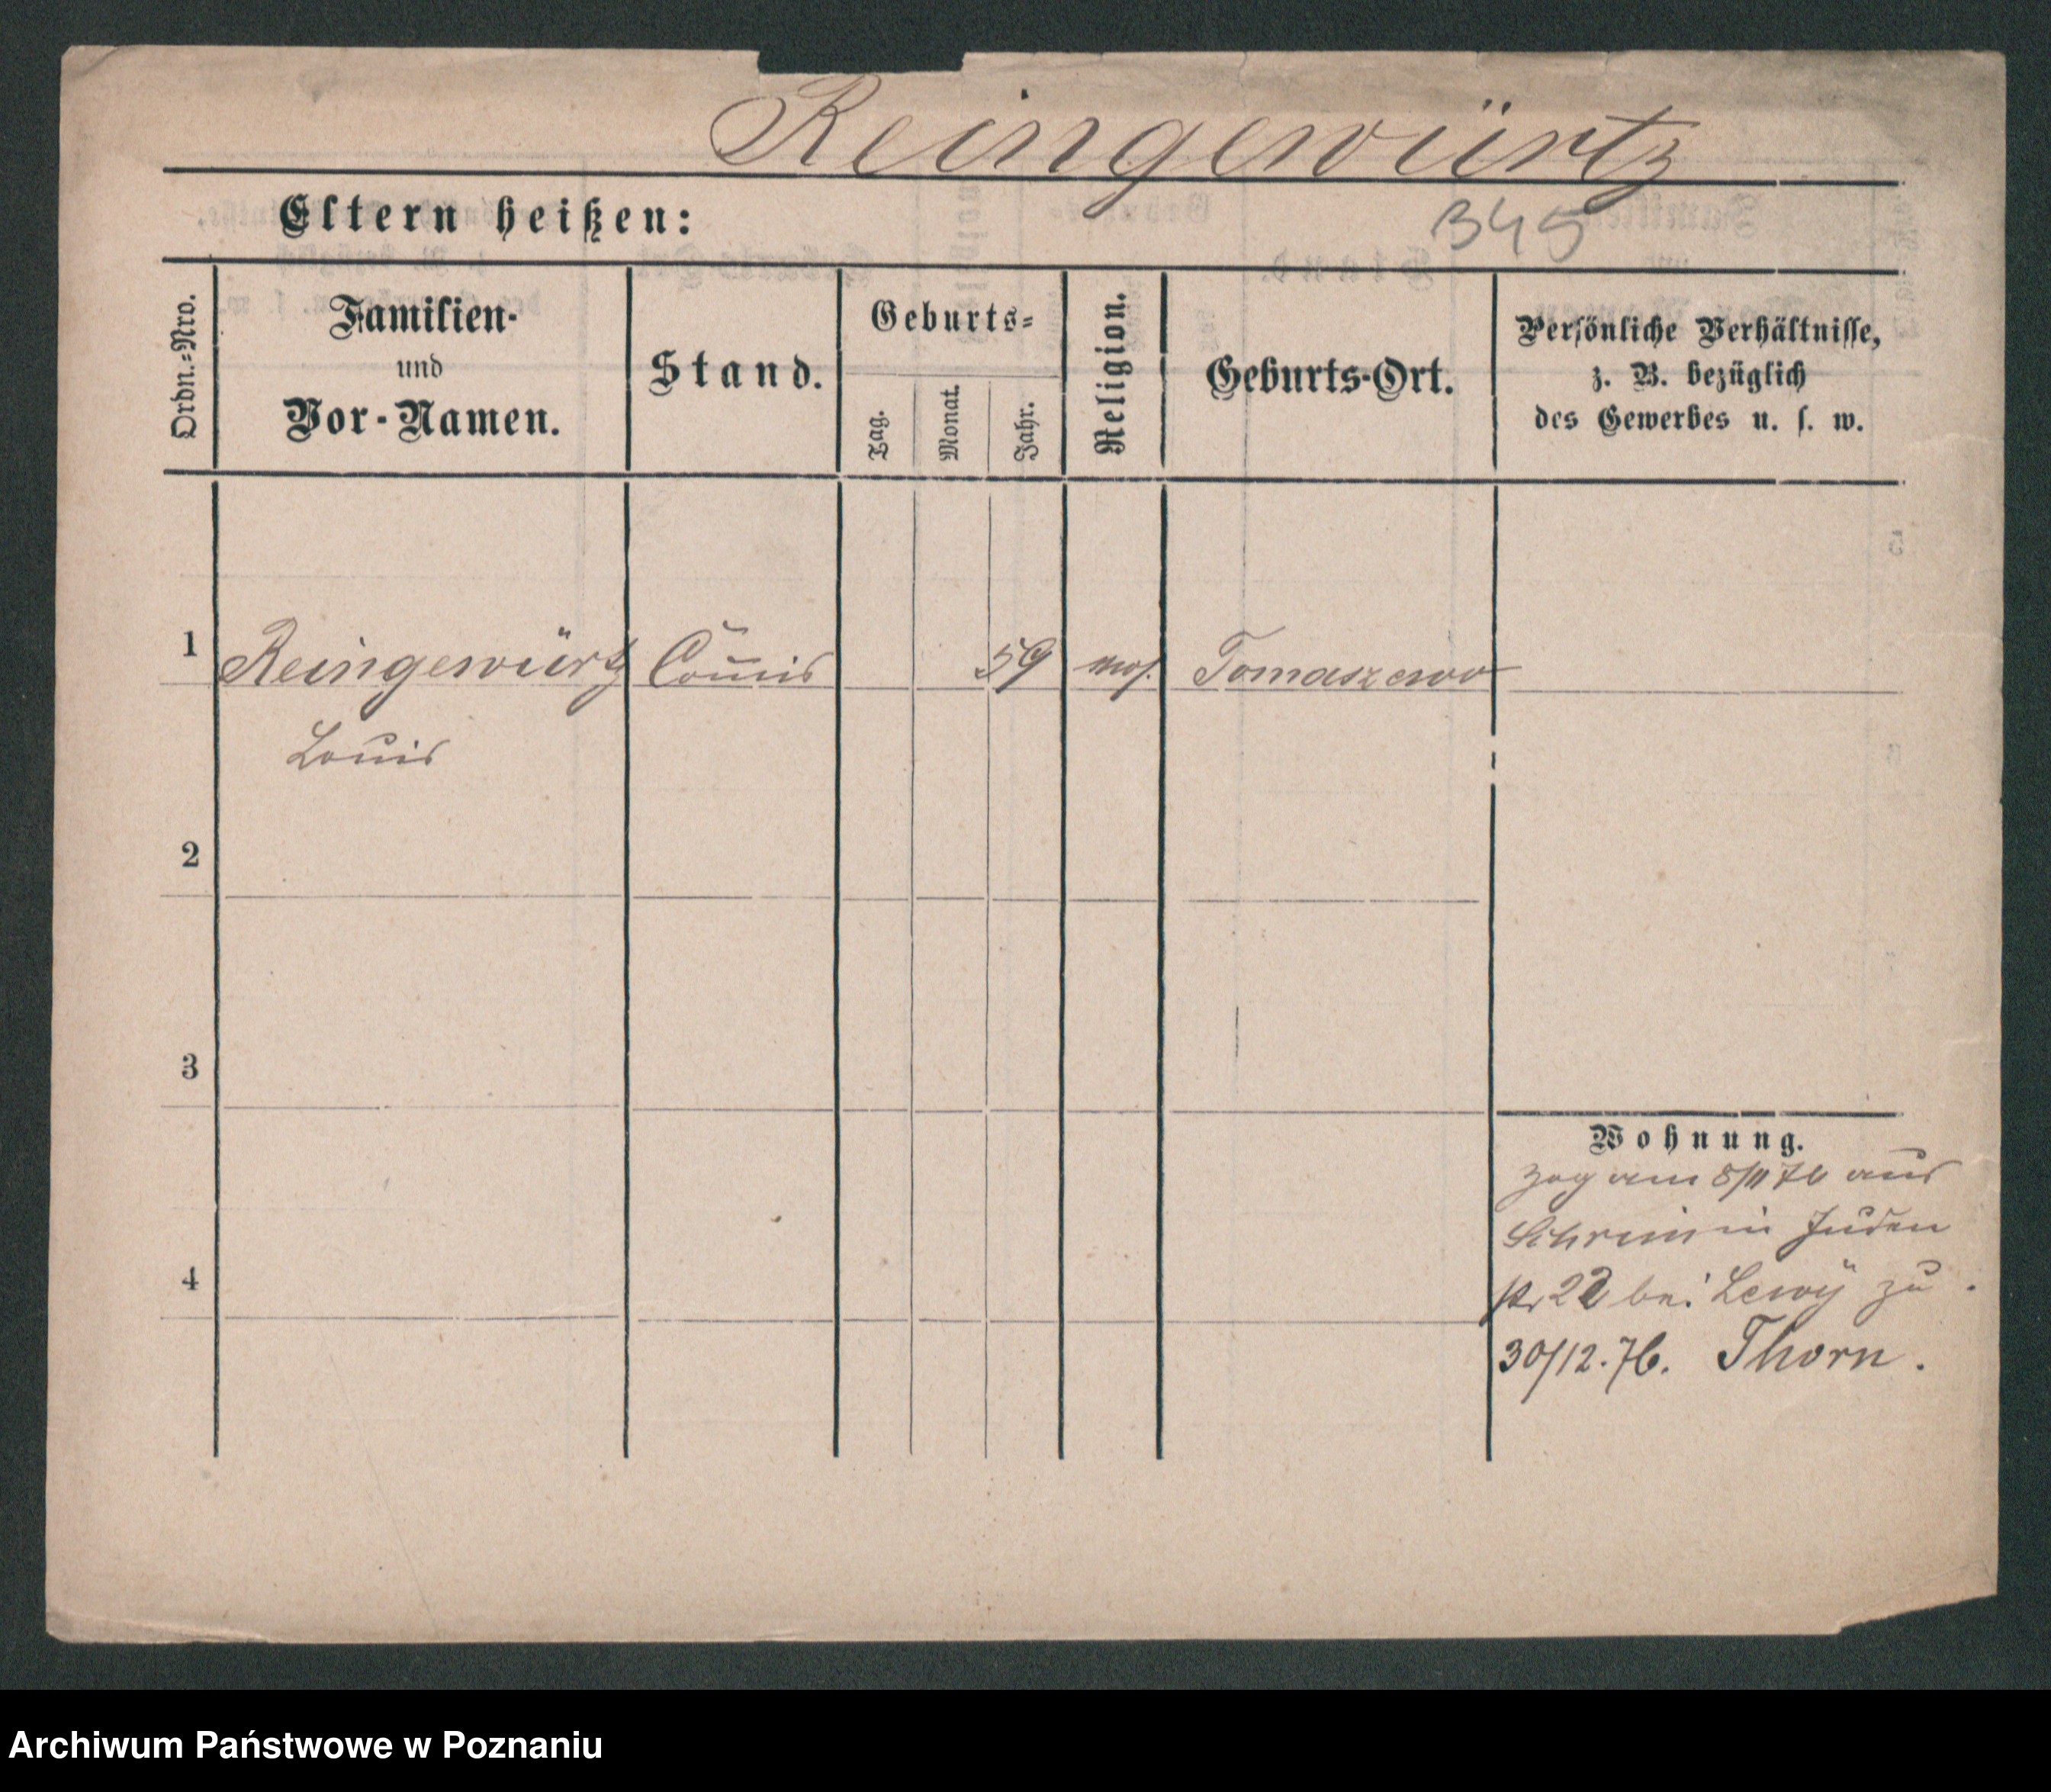 Reingewürtz
345
Eltern heißen:
Ordn.=Nro.
Familien-
und
Vor-Namen.
Stand.
Geburts=
Tag.
Monat.
Jahr.
Religion.
Geburts-Ort.
Persönliche Verhältnisse,
z. B. bezüglich
des Gewerbes u. s. w.
1 Reingewürtz Com̄is 59 mos. Tomaszewo
Louis
2
3
4
Wohnung.
zog am 8/11 76 aus
Schrim in Juden
str 22 bei Lewÿ zu.
30/12.76. Thorn.
Archiwum Państwowe w Poznaniu